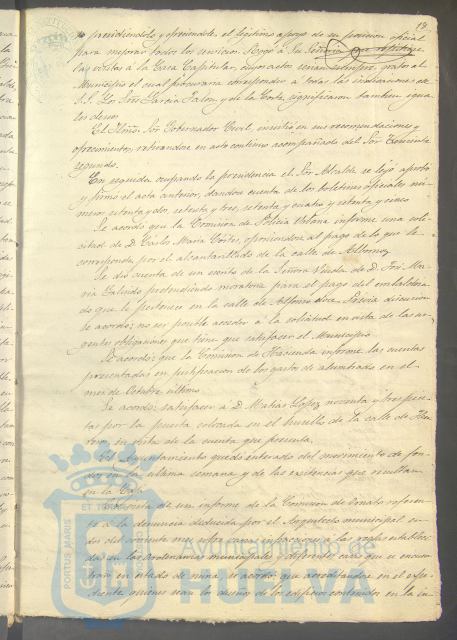 18.
presidiéndolo y ofreciendole, el legitimo apoyo de su posicion oficial
para mejorar todos los servicios. Rogó á Su Señoria que repitiese
las visitas á la Casa Capitular, cuyos actos serian gratos al
Municipio el cual procuraria corresponder a todas las indicaciones de
S.S. Los Sres Garcia y de la Corte, significaron tambien igua
les deseos.
El Ilmo. Sor Gobernador Civil, insistió en sus recomendaciones y
ofrecimientos, retirandose en acto continuo acompañado del Sor Teniente
segundo.
En seguida ocupando la presidencia el Sor Alcalde se leyó aprobó
y firmó el acta anterior, dandose cuenta de los boletines oficiales nú-
meros setenta y dos, setenta y tres, setenta y cuatro y setenta y cinco
Se acordó que la Comision de Policia Urbana informe una soli-
citud de D. Carlos Maria Cortes, oponiendose al pago de lo que le
corresponda, por el alcantarillado de la calle de Albornoz
Se dió cuenta de un escrito de la Señora Viuda de D. José Ma-
ria Galindo pretendiendo moratoria para el pago del embaldosa-
do que le pertenece en la calle de Alfonso doce. Prévia discusion
se acordó; no ser posible acceder á la solicitud en vista de las ur-
gentes obligaciones que tiene que satisfacer el Municipio
Se acordó: que la Comision de Hacienda informe las cuentas
presentadas en justificacion de los gastos de alumbrado en el
mes de Octubre último.
Se acordó: satisfacer á D. Matias Lopez noventa y tres pese-
tas por la puerta colocada en el husillo de la calle de
en vista de la cuenta que presenta.
El Ayuntamiento quedó enterado del movimiento de fon-
dos en la última semana y de las existencias que resultan
en la Caja
cuenta de un informe de la Comision de Ornato referen-
te á la denuncia deducida por el Arquitecto municipal en
dos del corriente mes sobre como infraccion á las reglas estableci-
das en las Ordenanzas municipales y diferentes casas que se encuen-
tran en estado de ruina, se acordó que acreditandose en el espe-
diente quienes sean los dueños de los edificios contenidos en la in-
PORTUS MARIS
ET TERRAE
Ayuntamiento de
HUELVA